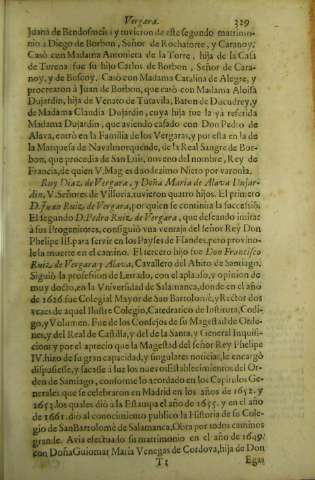 Vergara. 329
Juana de Bendosmesi; y tuvieron de este segundo matrimo-
nio a Diego de Borbon, Señor de Rochatorte, y Caranoy;
Casò con Madama Antonieta de la Torre, hija de la Casa
de Turena fue su hijo Carlos de Borbon, Señor de Cara-
noy, y de Boscoy, Casò con Madama Catalina de Alegre, y
procrearon à Juan de Borbon, que casò con Madama Aloisa
Dujardin, hija de Venato de Tutavila, Baron de Ducudrey, y
de Madama Claudia Dujardin, cuya hija fue la ya referida
Madama Dujardin, que aviendo casado con Don Pedro de
Alava, entrò en la Familia de los Vergaras, y por esta en la de
la Marquesa de Navalmorquende, de la Real Sangre de Bor-
bon, que procedia de San Luis, noveno del nombre, Rey de
Francia, de quien V. Mag es daodezimo Nieto por varonia.
Ruy Diaz de Vergara, y Doña Maria de Alava Dujar-
din, V. Señores de Villoria, tuvieron quatro hijos. El primero
D. Juan Ruiz de Vergara, por quien se continua la succession.
El segundo D. Pedro Ruiz de Vergara, que deseando imitar
à sus Progenitores, consiguiò una ventaja del señor Rey Don
Phelipe III. para servir en los Payses de Flandes, pero provino-
le la muerte en el camino. El tercero hijo fue Don Francisco
Ruiz de Vergara y Alava, Cavallero del Abito de Santiago,
Siguiò la profession de Letrado, con el aplauso, y opinion de
muy docto, en la Vniversidad de Salamanca, donde en el año
de 1626 fue Colegial Mayor de San Bartolomè, y Rector dos
vezes de aquel Ilustre Colegio, Catedratico de Instituta, Codi-
go, y Volumen. Fue de los Consejos de su Magestad de Orde-
nes, y del Real de Castilla, y del de la Santa, y General Inquisi-
cion; y por el aprecio que la Magestad del señor Rey Phelipe
IV. hizo de su gran capacidad, y singulares noticias, le encargò
dispusiesse, y sacasse à luz los nuevos Establecimientos del Or-
den de Santiago, conforme lo acordado en los Capitulos Ge-
nerales que se celebraron en Madrid en los años de 1652. y
1653 los quales diò à la Estampa el año de 1655. y en el año
de 1661. diò al conocimiento publico la Historia de su Cole-
gio de San Bartolomè de Salamanca, Obra por todos caminos
grande. Avia efectuado su matrimonio en el año de 1649.
con Doña Guiomar Maria Venegas de Cordova, hija de Don
Tt Egas